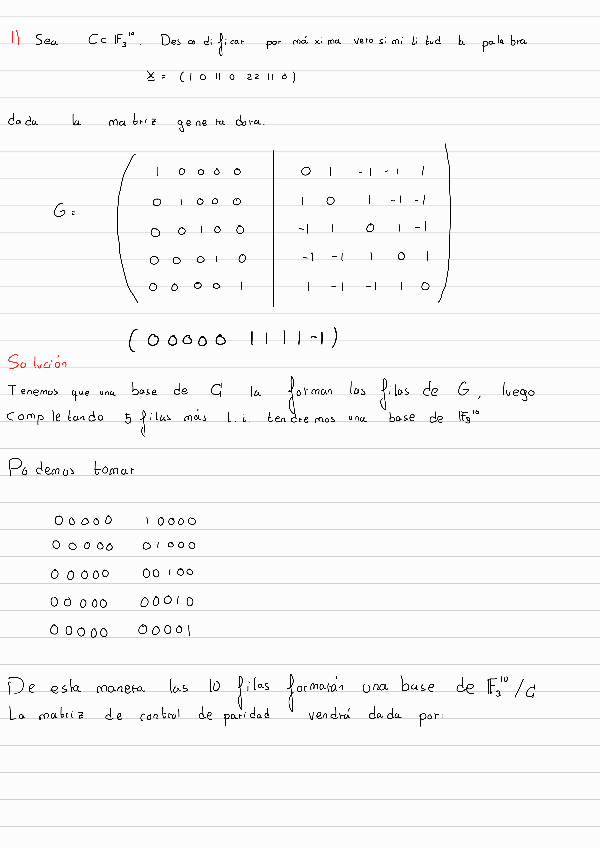 1) Sea C⊂ F₃¹⁰. Descodificar por máxima verosimilitud la palabra
x = (1 0 11 0 22 11 0)
dada la matriz generadora.
1 0 0 0 0 | 0 1 -1 -1 1
0 1 0 0 0 | 1 0 1 -1 -1
G= 0 0 1 0 0 | -1 1 0 1 -1
0 0 0 1 0 | -1 -1 1 0 1
0 0 0 0 1 | 1 -1 -1 1 0
(0 0 0 0 0 1 1 1 1 -1)
Solución
Tenemos que una base de G la forman las filas de G, luego
completando 5 filas más l.i. tendremos una base de F₃¹⁰
Podemos tomar
0 0 0 0 0 1 0 0 0 0
0 0 0 0 0 0 1 0 0 0
0 0 0 0 0 0 0 1 0 0
0 0 0 0 0 0 0 0 1 0
0 0 0 0 0 0 0 0 0 1
De esta manera las 10 filas formarán una base de F₃¹⁰/G
La matriz de control de paridad vendrá dada por: